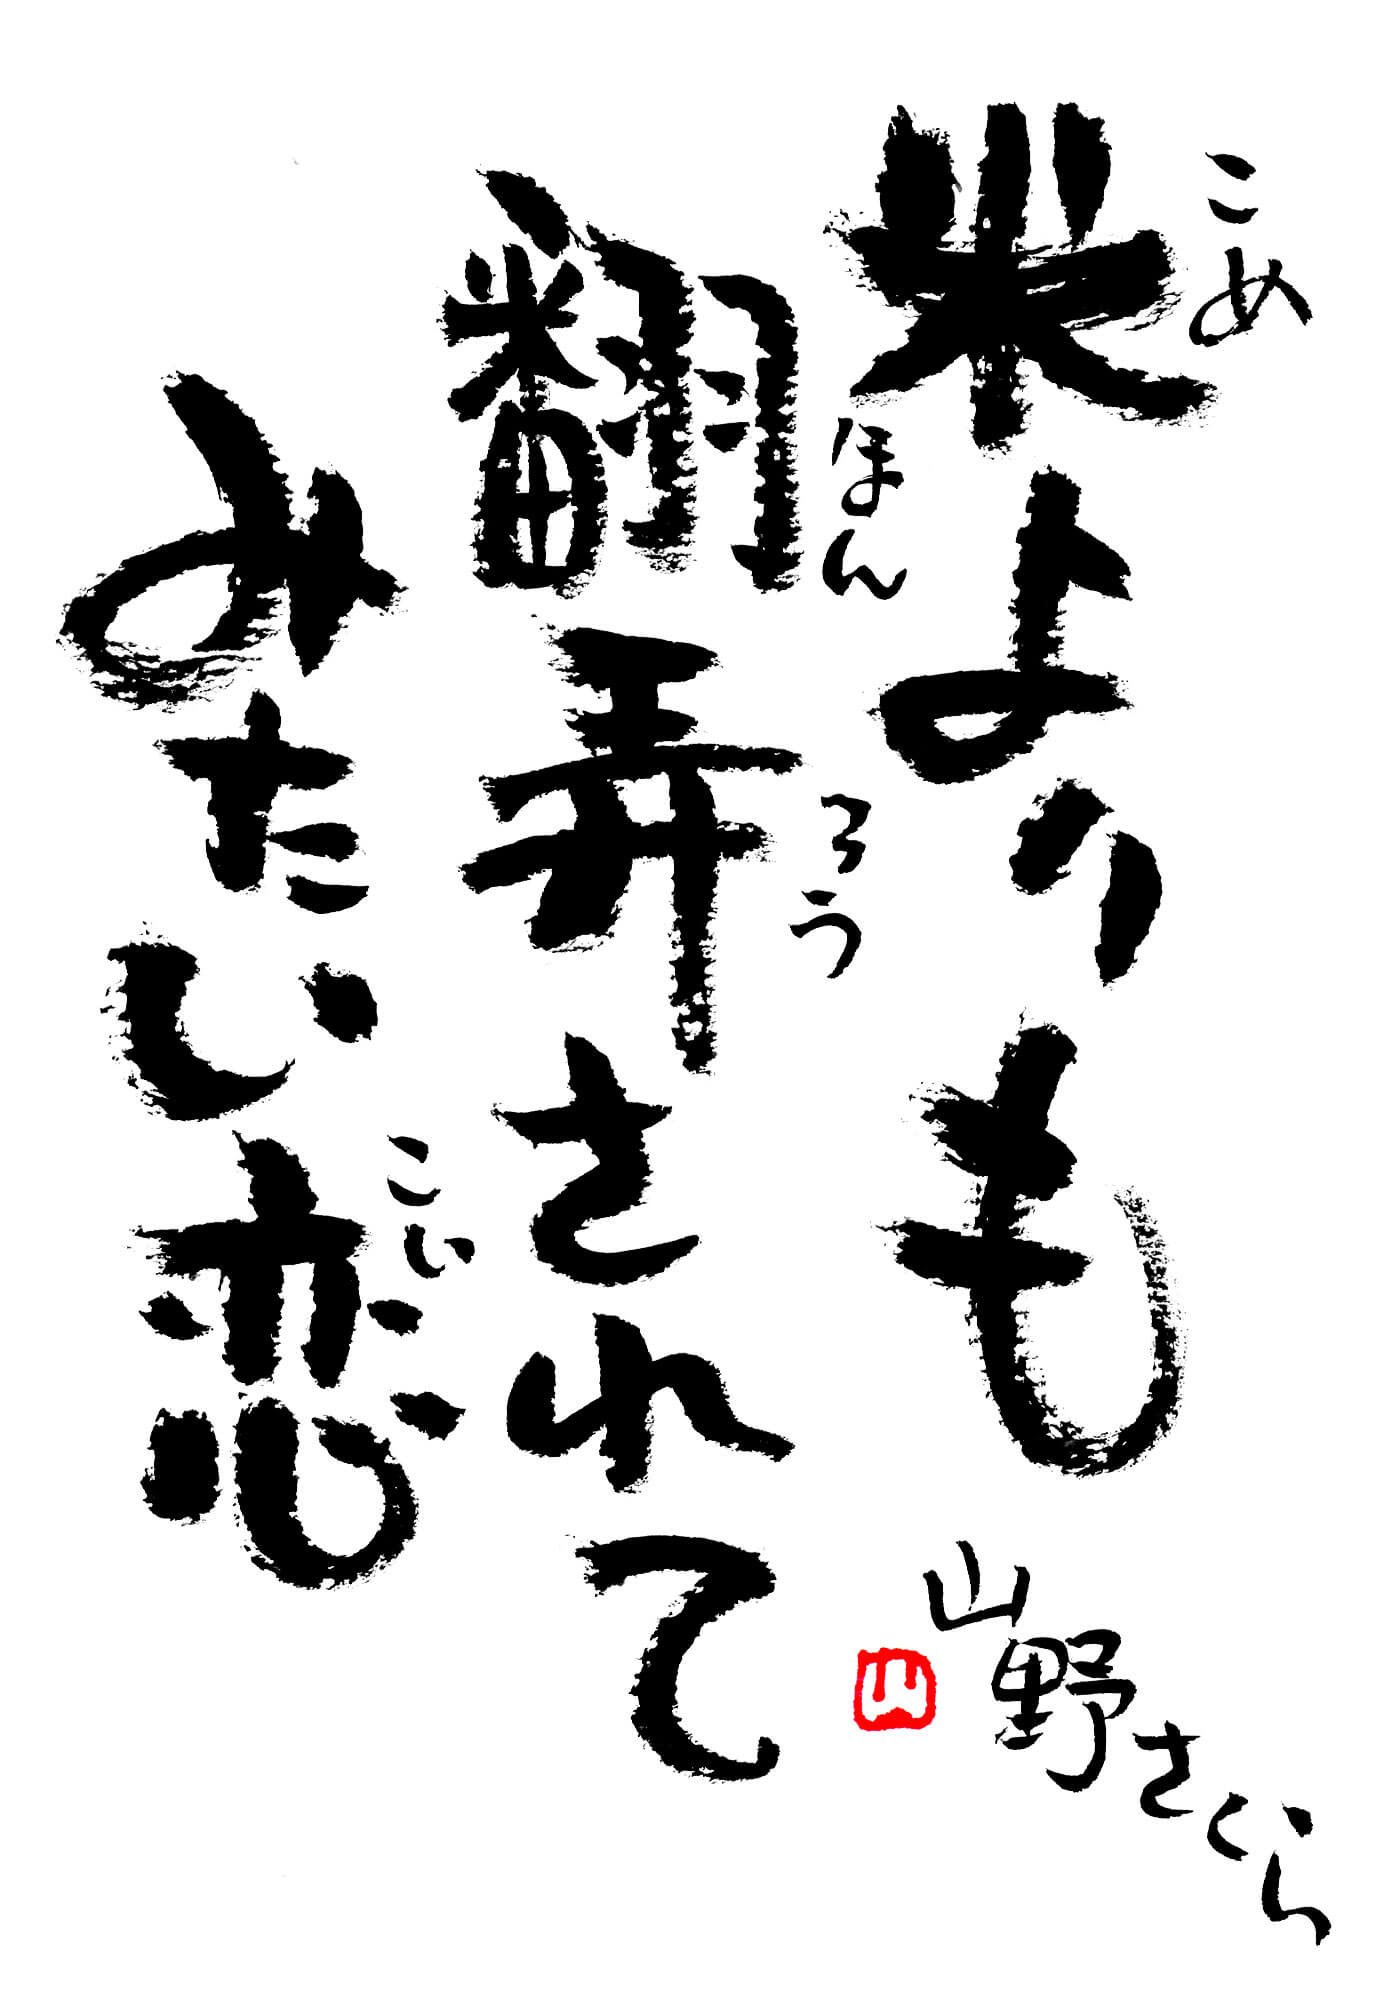 米よりも
こめ
翻弄されて
ほんろう
みたい恋
こい
山野さくら
山